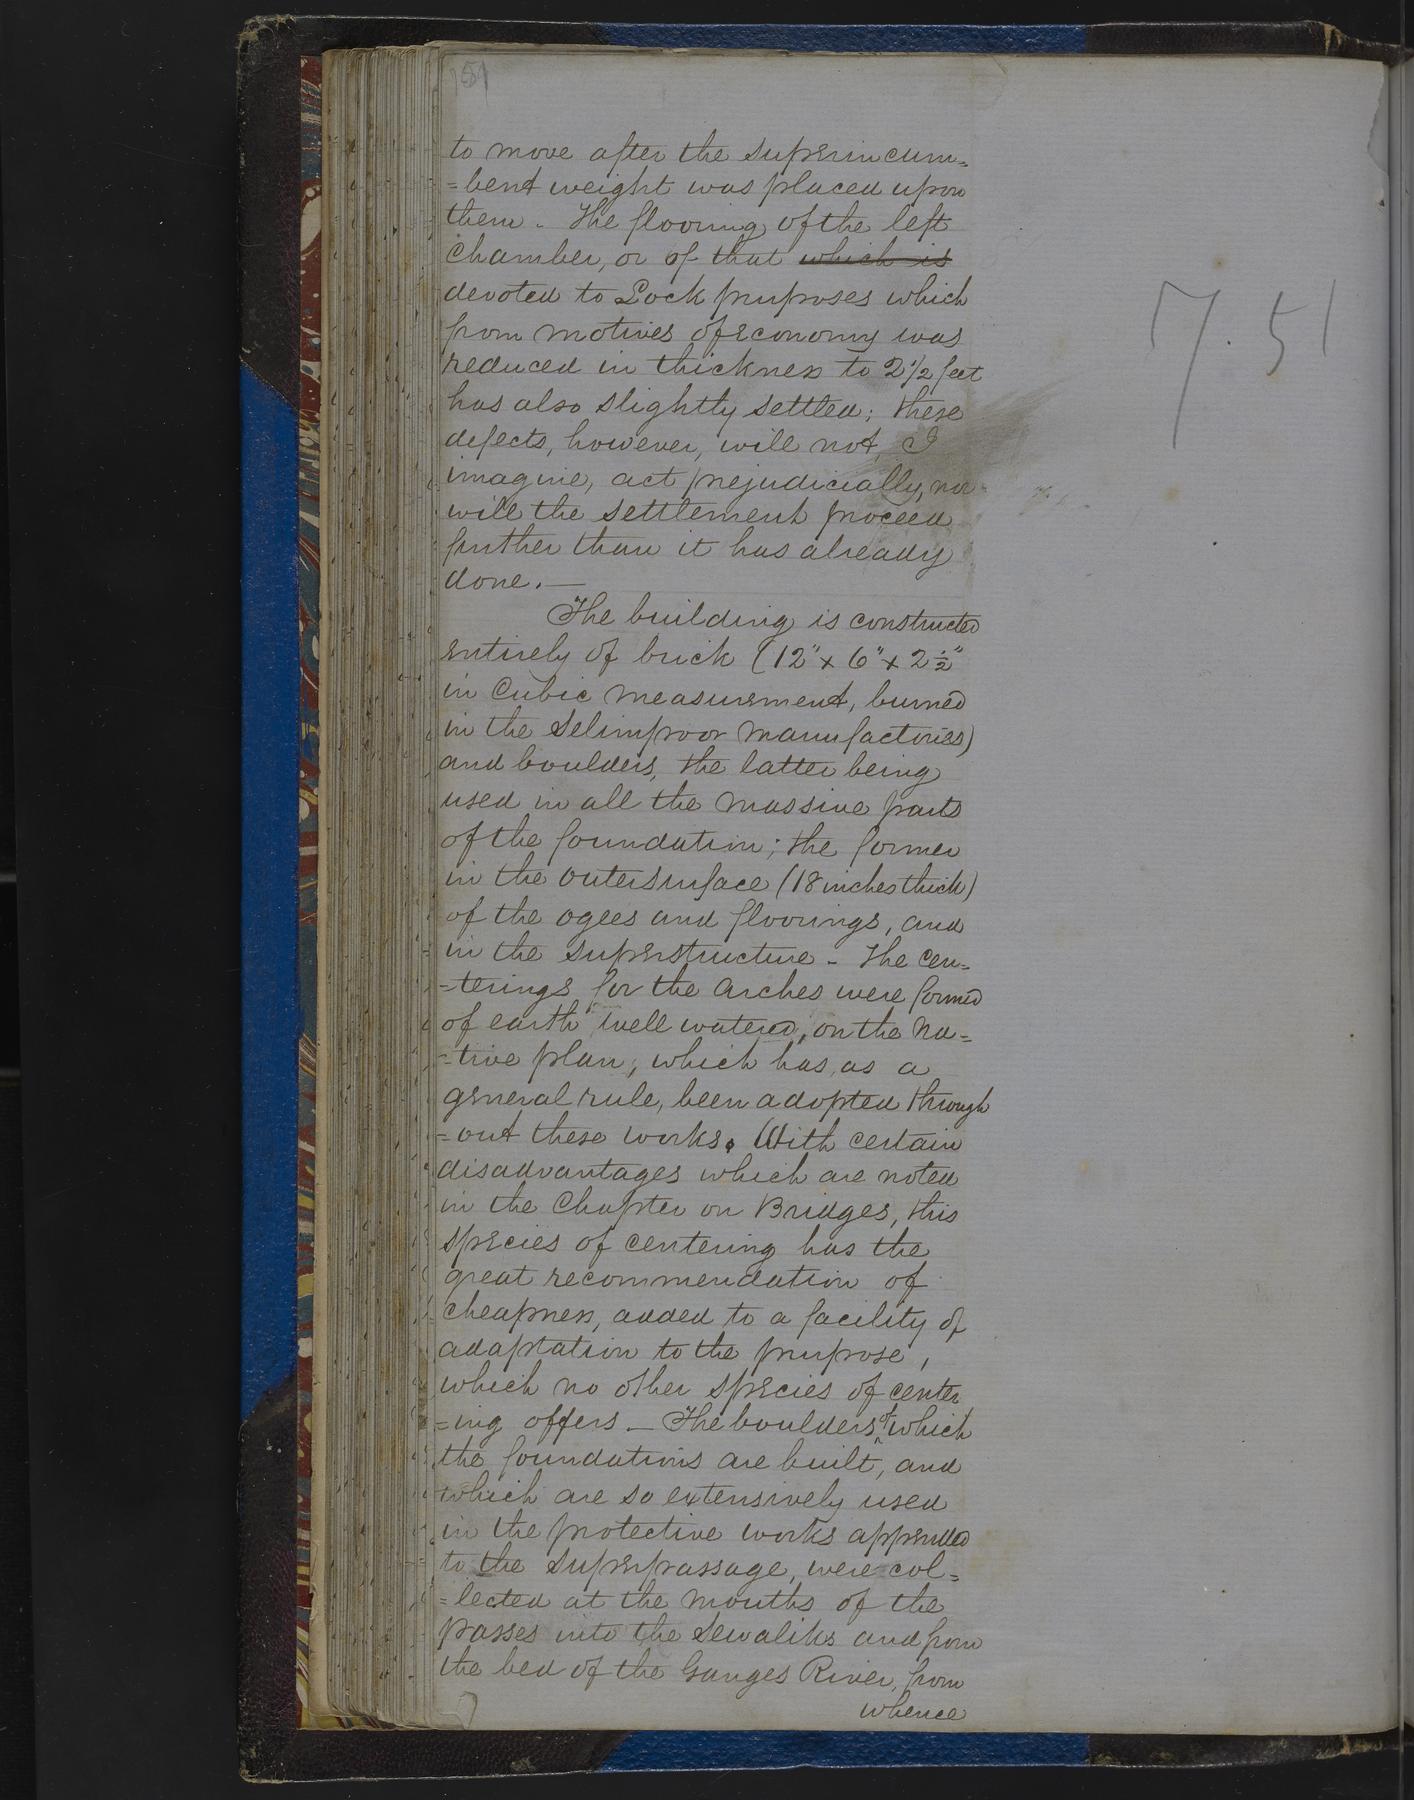 151
to move after the superincum=
=bent weight was placed upon
them. The flooring of the left
Chamber, or of that which is
devoted to Lock purposes which
from motives of economy was
reduced in thickness to 2 1/2 feet
has also slightly settled; these
defects, however, will not, I
imagine, act prejudicially, nor
will the settlement proceed
further than it has already
done. —
The building is constructed
entirely of brick (12" x 6" x 2 1/2"
in Cubic measurement, burned
in the Selimpoor manufactories)
and boulders, the latter being
used in all the massive parts
of the foundation; the former
in the outer surface (18 inches thick)
of the ogees and floorings, and
in the superstructure - The cen=
=terings for the arches were formed
of earth well watered, on the na=
=tive plan, which has, as a
general rule, been adopted through
=out these works. With certain
disadvantages which are noted
in the Chapter on Bridges, this
species of centering has the
great recommendation of
cheapness, added to a facility of
adaptation to the purpose,
which no other species of center
=ing offers — The boulders of which
the foundations are built, and
which are so extensively used
in the protective works appended
to the Superpassage, were col=
=lected at the mouths of the
passes into the Sewaliks and from
the bed of the Ganges River, from
whence
7.51